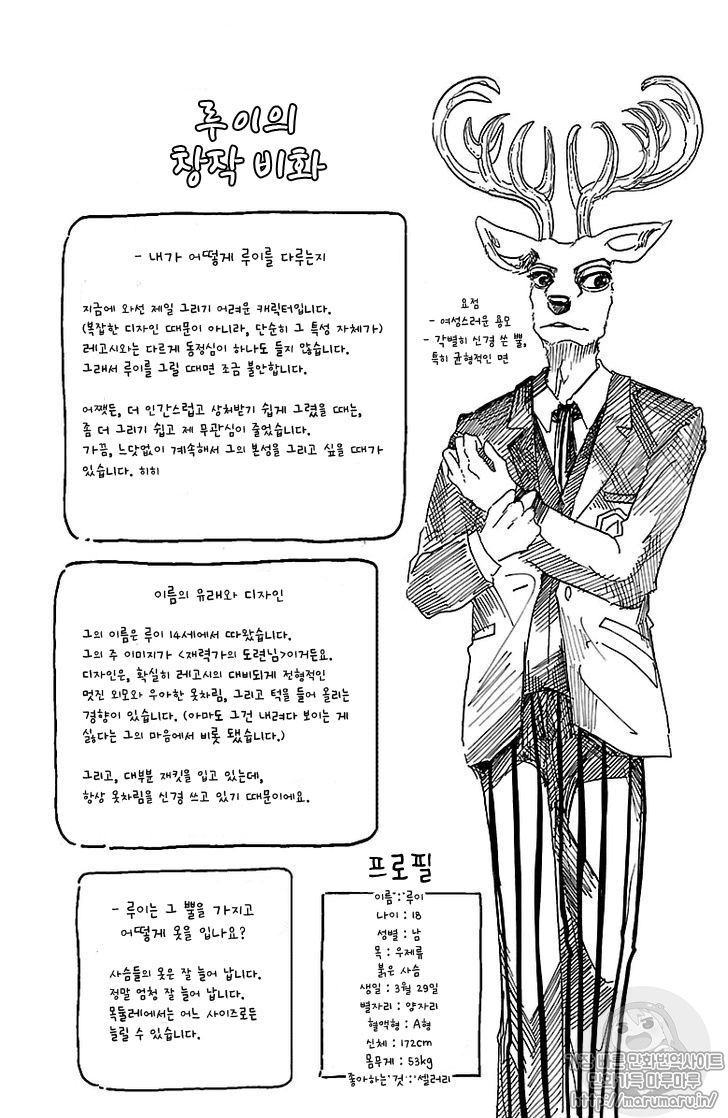 루이의
창작 비화
- 내가 어떻게 루이를 다루는지
지금에 와선 제일 그리기 어려운 캐릭터입니다.
(복잡한 디자인 때문이 아니라, 단순히 그 특성 자체가)
레고시와는 다르게 동정심이 하나도 들지 않습니다.
그래서 루이를 그릴 때면 조금 불안합니다.
어쨋든, 더 인간스럽고 상처받기 쉽게 그렸을 때는,
좀 더 그리기 쉽고 제 무관심이 줄었습니다.
가끔, 느닷없이 계속해서 그의 본성을 그리고 싶을 때가
있습니다. 히히
요점
- 여성스러운 용모
- 각별히 신경 쓴 뿔,
특히 균형적인 면
이름의 유래와 디자인
그의 이름은 루이 14세에서 따왔습니다.
그의 주 이미지가 <재력가의 도련님>이거든요.
디자인은, 확실히 레고시의 대비되게 전형적인
멋진 외모와 우아한 옷차림, 그리고 턱을 들어 올리는
경향이 있습니다. (아마도 그건 내려다 보이는 게
싫다는 그의 마음에서 비롯 됐습니다.)
그리고, 대부분 재킷을 입고 있는데,
항상 옷차림을 신경 쓰고 있기 때문이에요.
- 루이는 그 뿔을 가지고
어떻게 옷을 입나요?
사슴들의 옷은 잘 늘어 납니다.
정말 엄청 잘 늘어 납니다.
목둘레에서는 어느 사이즈로든
늘릴 수 있습니다.
프로필
이름 : 루이
나이 : 18
성별 : 남
목 : 우제류
붉은 사슴
생일 : 3월 29일
별자리 : 양자리
혈액형 : A형
신체 : 172cm
몸무게 : 53kg
좋아하는 것 : 셀러리
가장 빠른 만화번역사이트
만화가득 마루마루
http://marumaru.in/